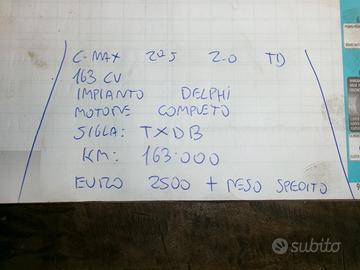 C-MAX 2015 2.0 TD
163 CV
IMPIANTO DELPHI
MOTORE COMPLETO
SIGLA: TXDB
KM: 163.000
EURO 2500 + RESO SPEDITO
subito